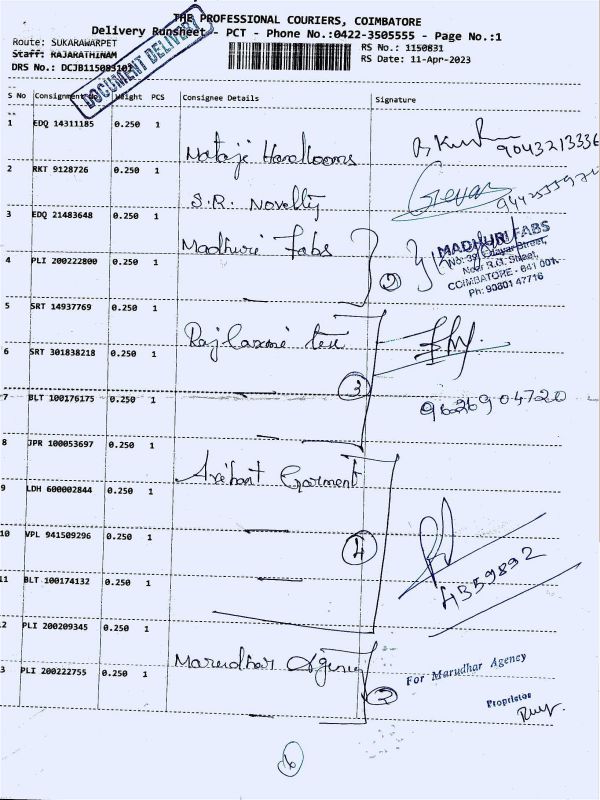 THE PROFESSIONAL COURIERS, COIMBATORE
Delivery Runsheet - PCT - Phone No.:0422-3505555 - Page No.:1
Route: SUKARAWARPET
RS No.: 1150831
Staff: RAJARATHINAM
RS Date: 11-Apr-2023
DRS No.: DCJB115083102
DOCUMENT DELIVERY
S No Consignment No Weight PCS Consignee Details Signature
1 EDQ 14311185 0.250 1
Handlooms
9043213336
2 RKT 9128726 0.250 1
S.R. Novelty
3 EDQ 21483648 0.250 1
Madhuri Fabs
MADHURI FABS
Street,
Near R.G. Street,
COIMBATORE - 641 001.
Ph: 90801 47716
4 PLI 200222800 0.250 1
2
5 SRT 14937769 0.250 1
Raj Laxmi tex
6 SRT 301838218 0.250 1
3
7 BLT 100176175 0.250 1
9626904720
8 JPR 100053697 0.250 1
Arihant Garment
9 LDH 600002844 0.250 1
10 VPL 941509296 0.250 1
4
4359892
11 BLT 100174132 0.250 1
2 PLI 200209345 0.250 1
Marudhar Agency
For Marudhar Agency
3 PLI 200222755 0.250 1
2
Proprietor